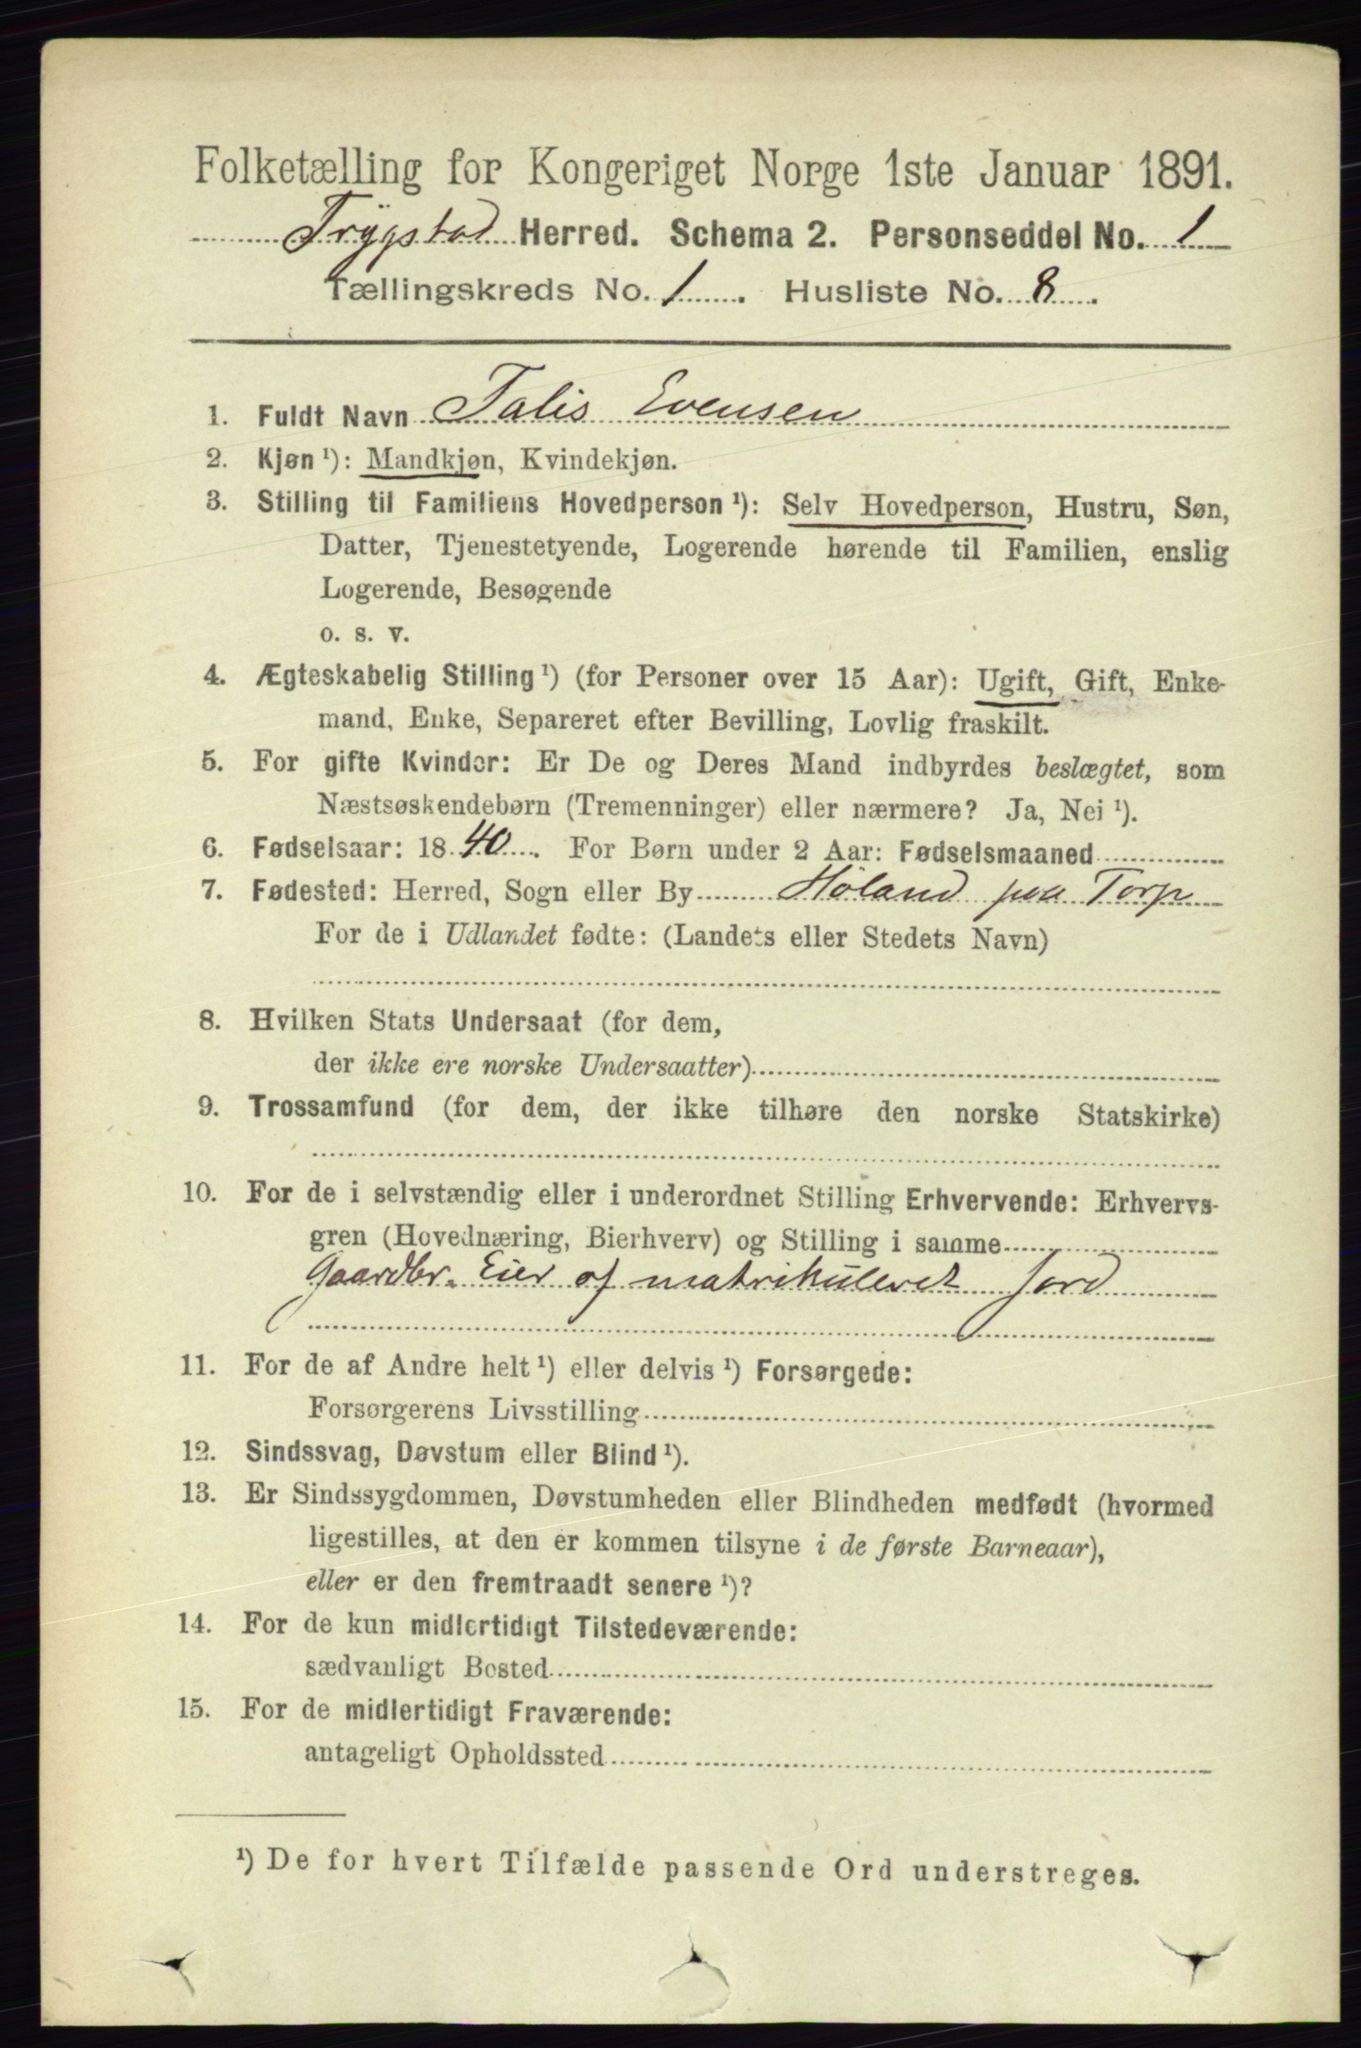 Folketælling for Kongeriget Norge 1ste Januar 1891.
Trygstad Herred. Schema 2. Personseddel No. 1
Tællingskreds No. 1. Husliste No. 8.
1. Fuldt Navn Talis Evensen
2. Kjøn ¹): Mandkjøn, Kvindekjøn.
3. Stilling til Familiens Hovedperson ¹): Selv Hovedperson, Hustru, Søn,
Datter, Tjenestetyende, Logerende hørende til Familien, enslig
Logerende, Besøgende
o. s. v.
4. Ægteskabelig Stilling ¹) (for Personer over 15 Aar): Ugift, Gift, Enke-
mand, Enke, Separeret efter Bevilling, Lovlig fraskilt.
5. For gifte Kvinder: Er De og Deres Mand indbyrdes beslægtet, som
Næstsøskendebørn (Tremenninger) eller nærmere? Ja, Nei ¹).
6. Fødselsaar: 1840. For Børn under 2 Aar: Fødselsmaaned
7. Fødested: Herred, Sogn eller By Höland paa Torp
For de i Udlandet fødte: (Landets eller Stedets Navn)
8. Hvilken Stats Undersaat (for dem,
der ikke ere norske Undersaatter)
9. Trossamfund (for dem, der ikke tilhøre den norske Statskirke)
10. For de i selvstændig eller i underordnet Stilling Erhvervende: Erhvervs-
gren (Hovednæring, Bierhverv) og Stilling i samme
Gaardbr. Eier af matrikuleret Jord
11. For de af Andre helt ¹) eller delvis ¹) Forsørgede:
Forsørgerens Livsstilling
12. Sindssvag, Døvstum eller Blind ¹).
13. Er Sindssygdommen, Døvstumheden eller Blindheden medfødt (hvormed
ligestilles, at den er kommen tilsyne i de første Barneaar),
eller er den fremtraadt senere ¹)?
14. For de kun midlertidigt Tilstedeværende:
sædvanligt Bosted
15. For de midlertidigt Fraværende:
antageligt Opholdssted
¹) De for hvert Tilfælde passende Ord understreges.